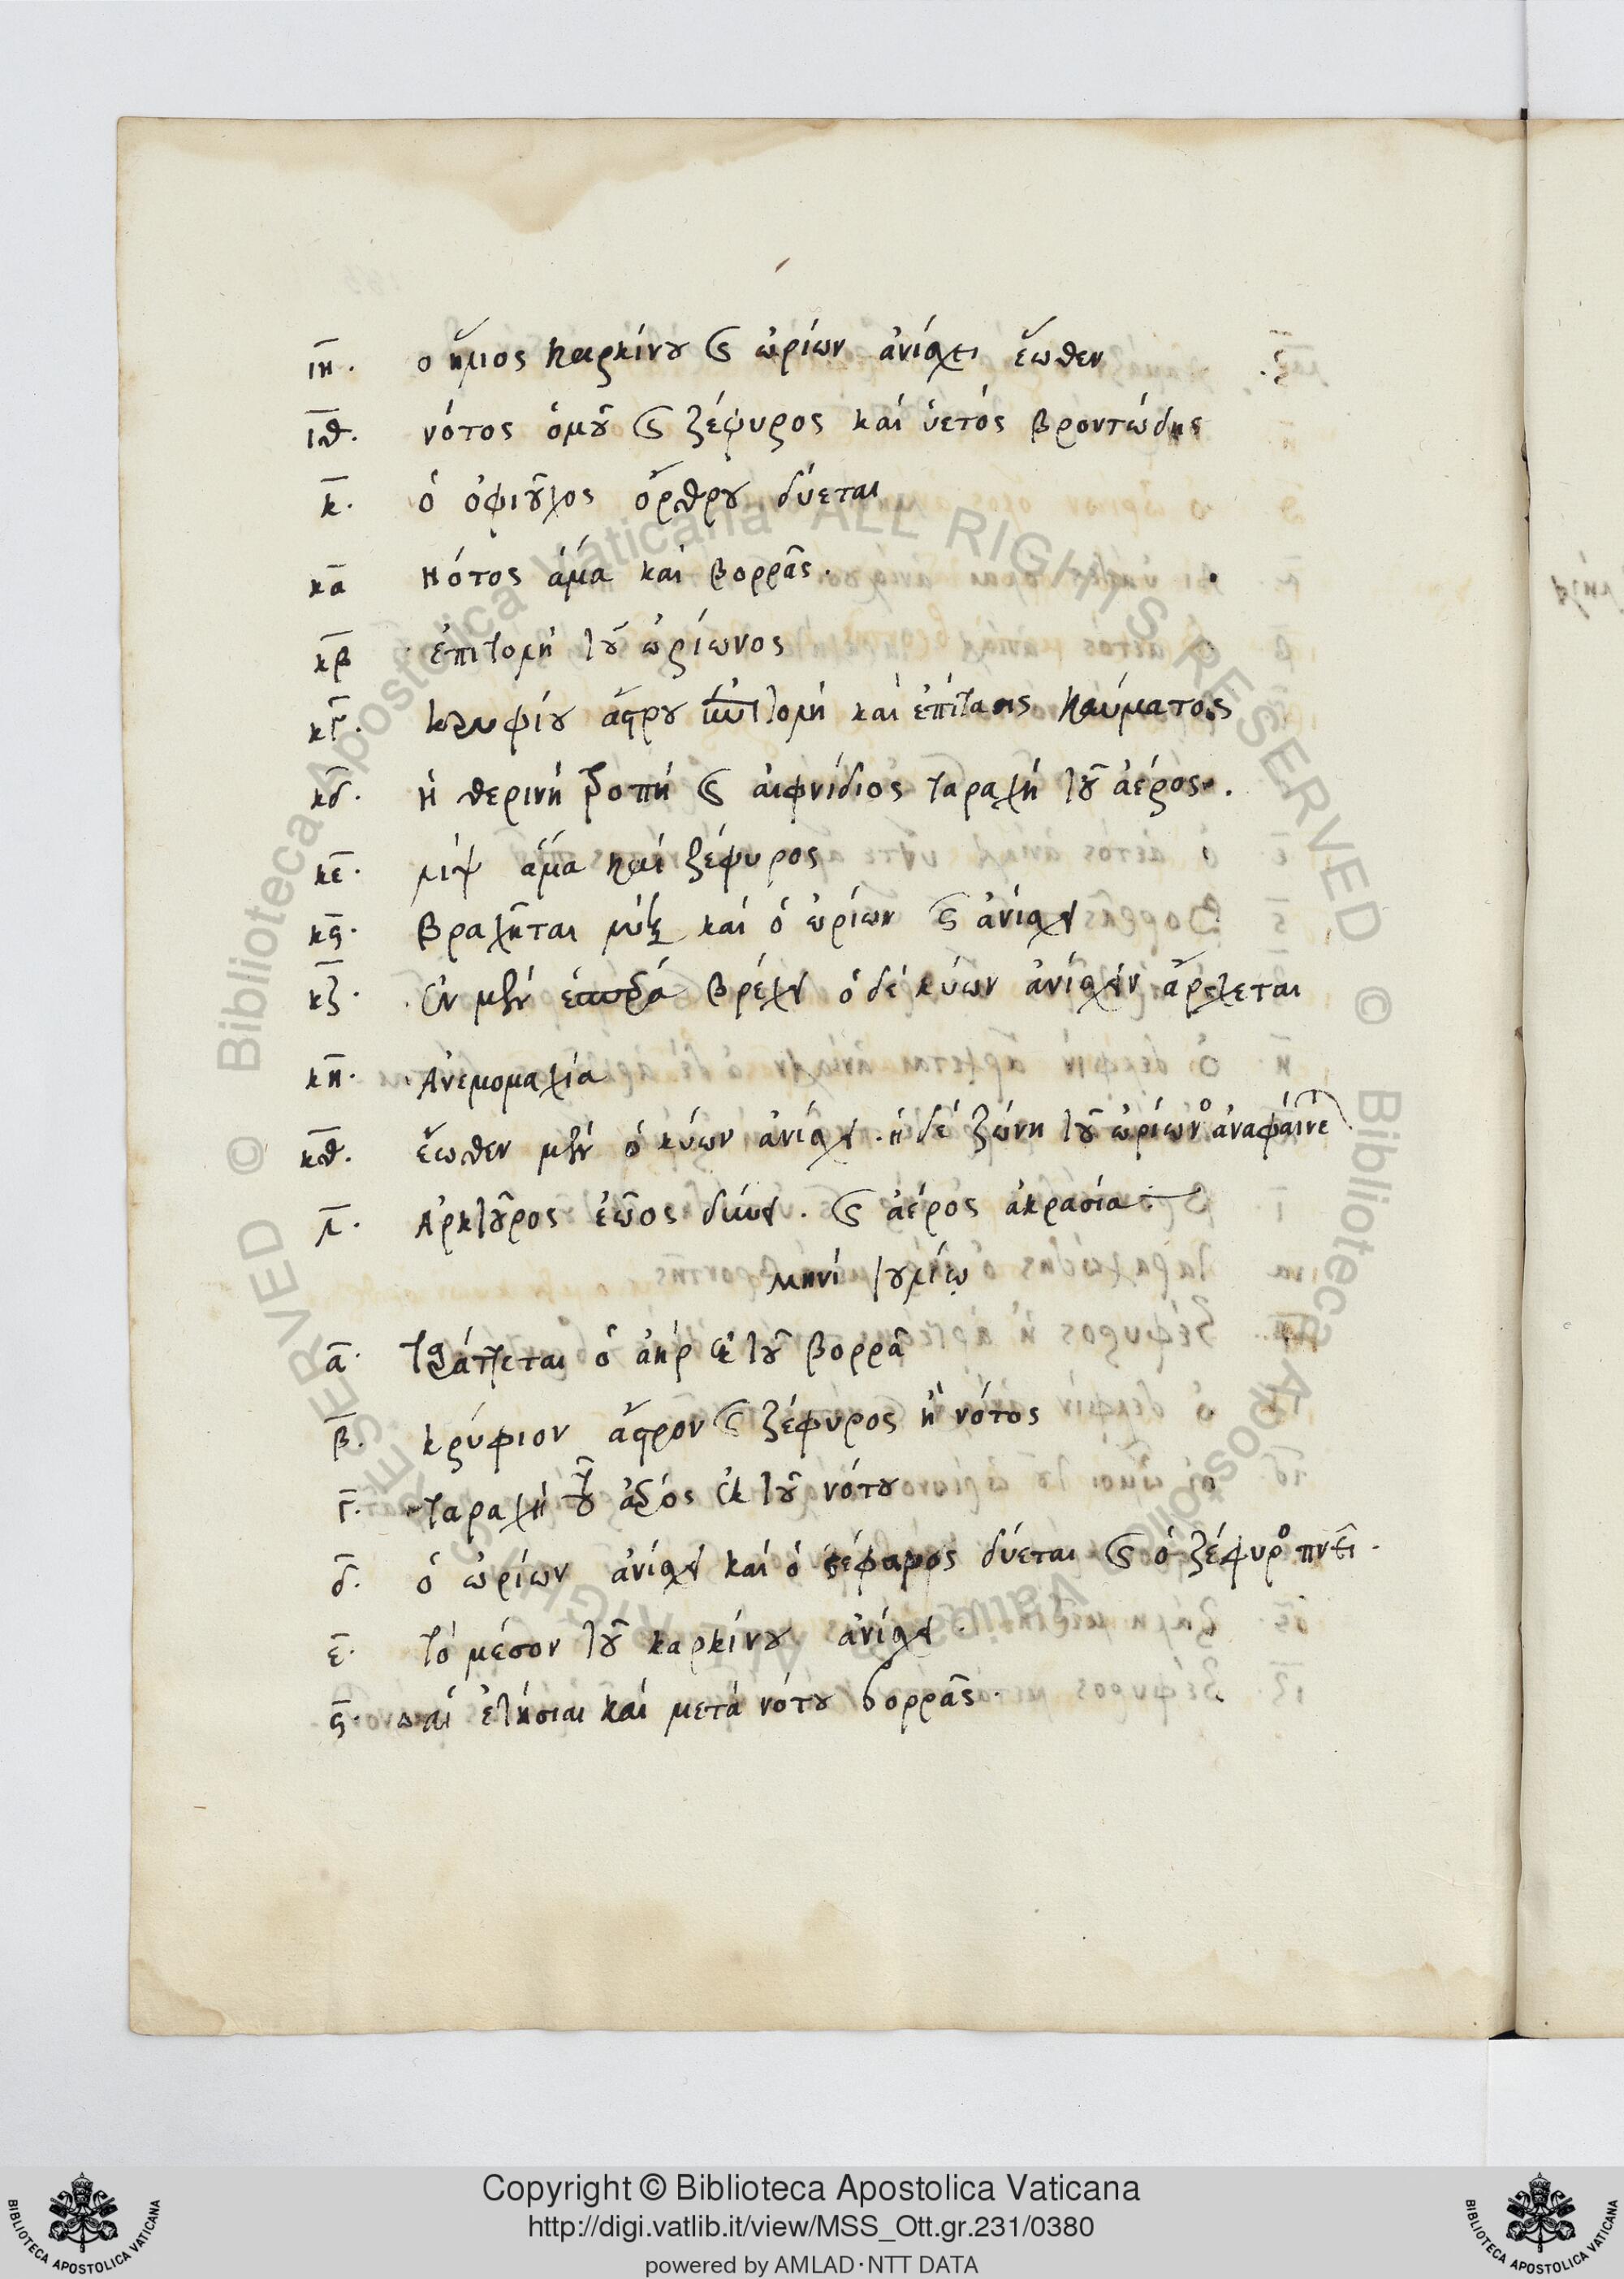 ιη. ο ἥλιος καρκίνου ϗ ὠρίων ἀνίσχει ἕωθεν
ιθ. νότος ὁμοῦ ϗ ζέφυρος καὶ ὑετός βροντώδης
κ. ὁ ὀφιοῦχος ὄρθρου δύεται
κα νότος ἅμα καὶ βορρᾶς.
κβ ἐπιτολὴ τοῦ ὠρίωνος
κγ. κρυφίου ἄστρου ἐπιτολή καὶ ἐπίτασις καύματος
κδ. ἡ θερινή τροπή ϗ αἰφνίδιος ταραχή τοῦ ἀέρος.
κε. λίψ ἅμα καὶ ζέφυρος
κς. βραχήται καὶ ὁ ὠρίων ϗ ἀνίσχει
κζ. μὲν βρέχει ὁ δὲ κύων ἀνίσχειν ἄρχεται
κη. Ἀνεμομαχία
κθ. ἕωθεν μὲν ὁ κύων ἀνίσχει. ἡ δὲ ζώνη τοῦ ὠρίωνος ἀναφαίνε
λ. Ἀρκτοῦρος ἑῶος δύνει. ϗ ἀέρος ἀκρασία
μηνὶ Ἰουλίῳ
α. ταράττεται ὁ ἀὴρ ἐκ τοῦ βορρᾶ
β. κρύφιον ἄστρον ϗ ζέφυρος ἢ νότος
γ. ταραχὴ τοῦ ἀέρος ἐκ τοῦ νότου
δ. ὁ ὠρίων ἀνίσχει καὶ ὁ στέφανος δύεται ϗ ὁ ζέφυρος πνεῖ.
ε. τὸ μέσον τοῦ καρκίνου ἀνίσχει.
ς. αἱ ἐτήσιαι καὶ μετὰ νότου βορρᾶς.
Copyright © Biblioteca Apostolica Vaticana
http://digi.vatlib.it/view/MSS_Ott.gr.231/0380
powered by AMLAD·NTT DATA
BIBLIOTECA APOSTOLICA VATICANA
BIBLIOTECA APOSTOLICA VATICANA
© Biblioteca Apostolica Vaticana ALL RIGHTS RESERVED
© Biblioteca Apostolica Vaticana ALL RIGHTS RESERVED